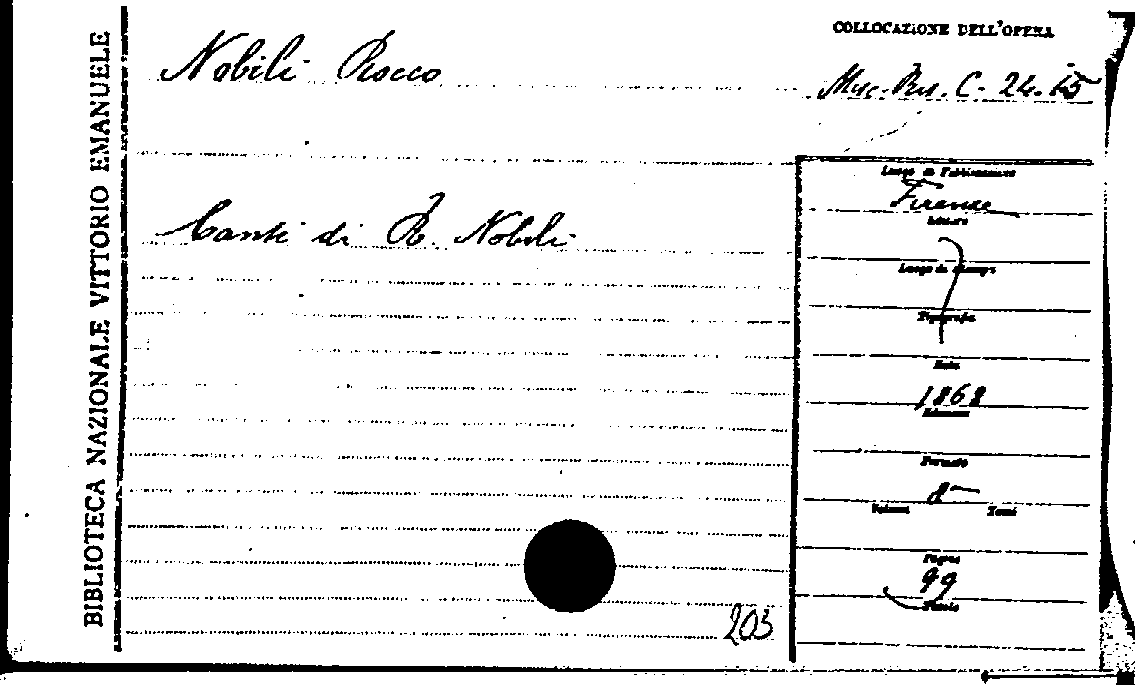 BIBLIOTECA NAZIONALE VITTORIO EMANUELE
COLLOCAZIONE DELL'OPERA
Nobili Rocco
Misc. Ris. C. 24. 15
Luogo di Pubblicazione
Firenze
Editore
Canti di R. Nobili
Luogo di stampa
Tipografia
Data
1868
Edizione
Formato
8
Volumi Tomi
Pagine
99
Tavole
203